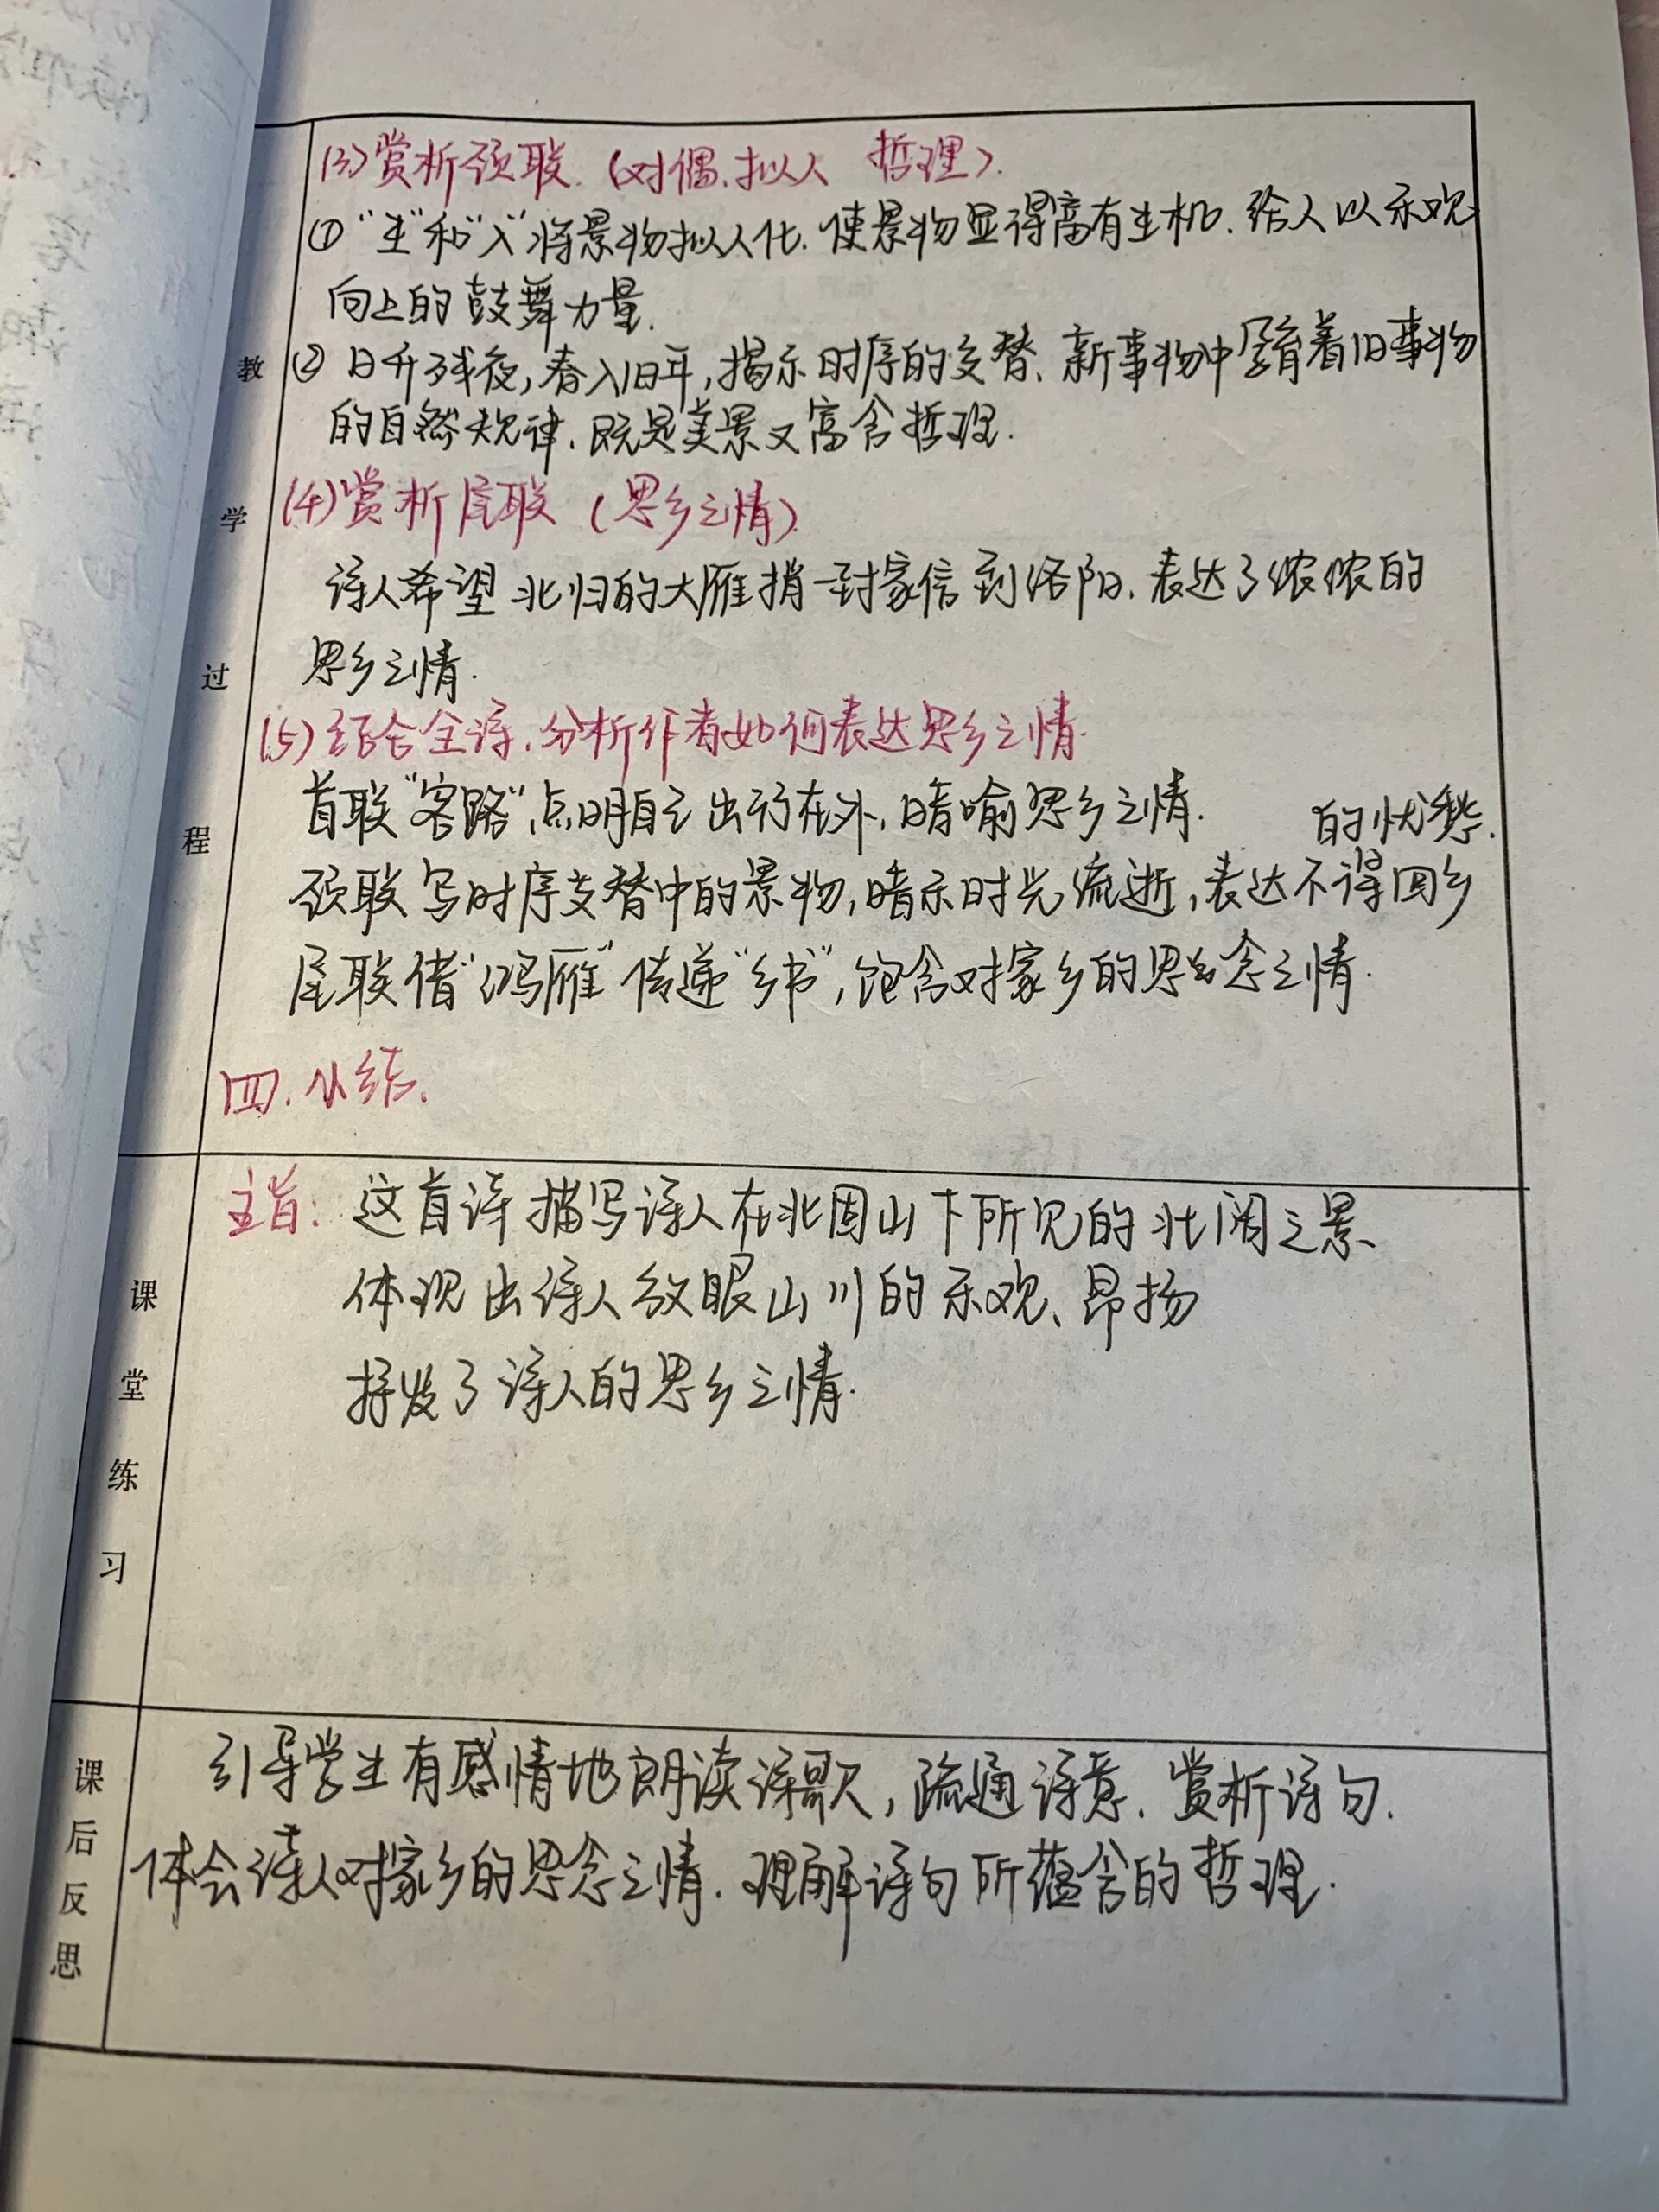 (3)赏析颈联.(对偶.拟人 哲理).
①“生”和“入”将景物拟人化.使景物显得富有生机.给人以乐观
向上的鼓舞力量.
②日升残夜,春入旧年,揭示时序的交替、新事物中孕育着旧事物
的自然规律.既是美景又富含哲理.
(4)赏析尾联(思乡之情).
诗人希望北归的大雁捎一封家信到洛阳.表达了浓浓的
思乡之情.
(5)结合全诗.分析作者如何表达思乡之情.
首联“客路”,点明自己出行在外,暗喻思乡之情.
的忧愁.
颈联写时序交替中的景物,暗示时光流逝,表达不得回乡
尾联借“鸿雁”传递“乡书”,饱含对家乡的思念之情.
四.小结.
教
学
过
程
主旨:这首诗描写诗人在北固山下所见的壮阔之景、
体现出诗人放眼山川的乐观、昂扬
抒发了诗人的思乡之情.
课
堂
练
习
引导学生有感情地朗读诗歌,疏通诗意.赏析诗句.
体会诗人对家乡的思念之情.理解诗句所蕴含的哲理.
课
后
反
思